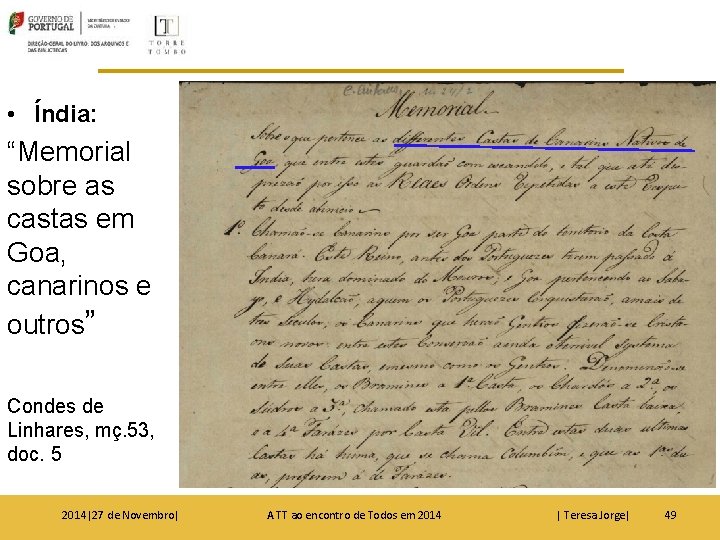 GOVERNO DE
PORTUGAL
DIREÇÃO-GERAL DO LIVRO, DOS ARQUIVOS E
DAS BIBLIOTECAS
TORRE
TOMBO
• Índia:
“Memorial
sobre as
castas em
Goa,
canarinos e
outros”
Condes de
Linhares, mç.53,
doc. 5
Memorial
Sobre o que pertence as differentes Castas de Canarins Nativos de
Goa que entre estes guardão com escandelo, e tal que até des-
prezão por isso as Reaes Ordens Repetidas a este Respei-
to desde abinicio
1º Chamão-se Canarins por ser Goa parte do territorio da Costa
Canará. Este Reino, antes dos Portuguezes terem passado á
India, hera dominado de Mouros; e Goa pertencendo ao Saba-
yo, e Hydalcão, aquem os Portuguezes conquistarão, amais de
tres Seculos; os Canarins que herão Gentios fizerão-se Cristá-
ons novos: entre estes Conservão ainda o terrivel systema
de Suas Castas, emesmo como os Gentios. Denomenão-se
entre elles, os Bramines a 1ª Casta, os Chardós a 2ª, os
Sudros a 3ª, chamada esta pellos Bramines Casta baixa
e a 4ª Farázes por Casta Vil. Entre estas duas ultimas
Castas há huma, que se chama Columbim, e que as 1ªs du-
as, preferem á de Farázes.
2014|27 de Novembro| A TT ao encontro de Todos em 2014 | Teresa Jorge| 49